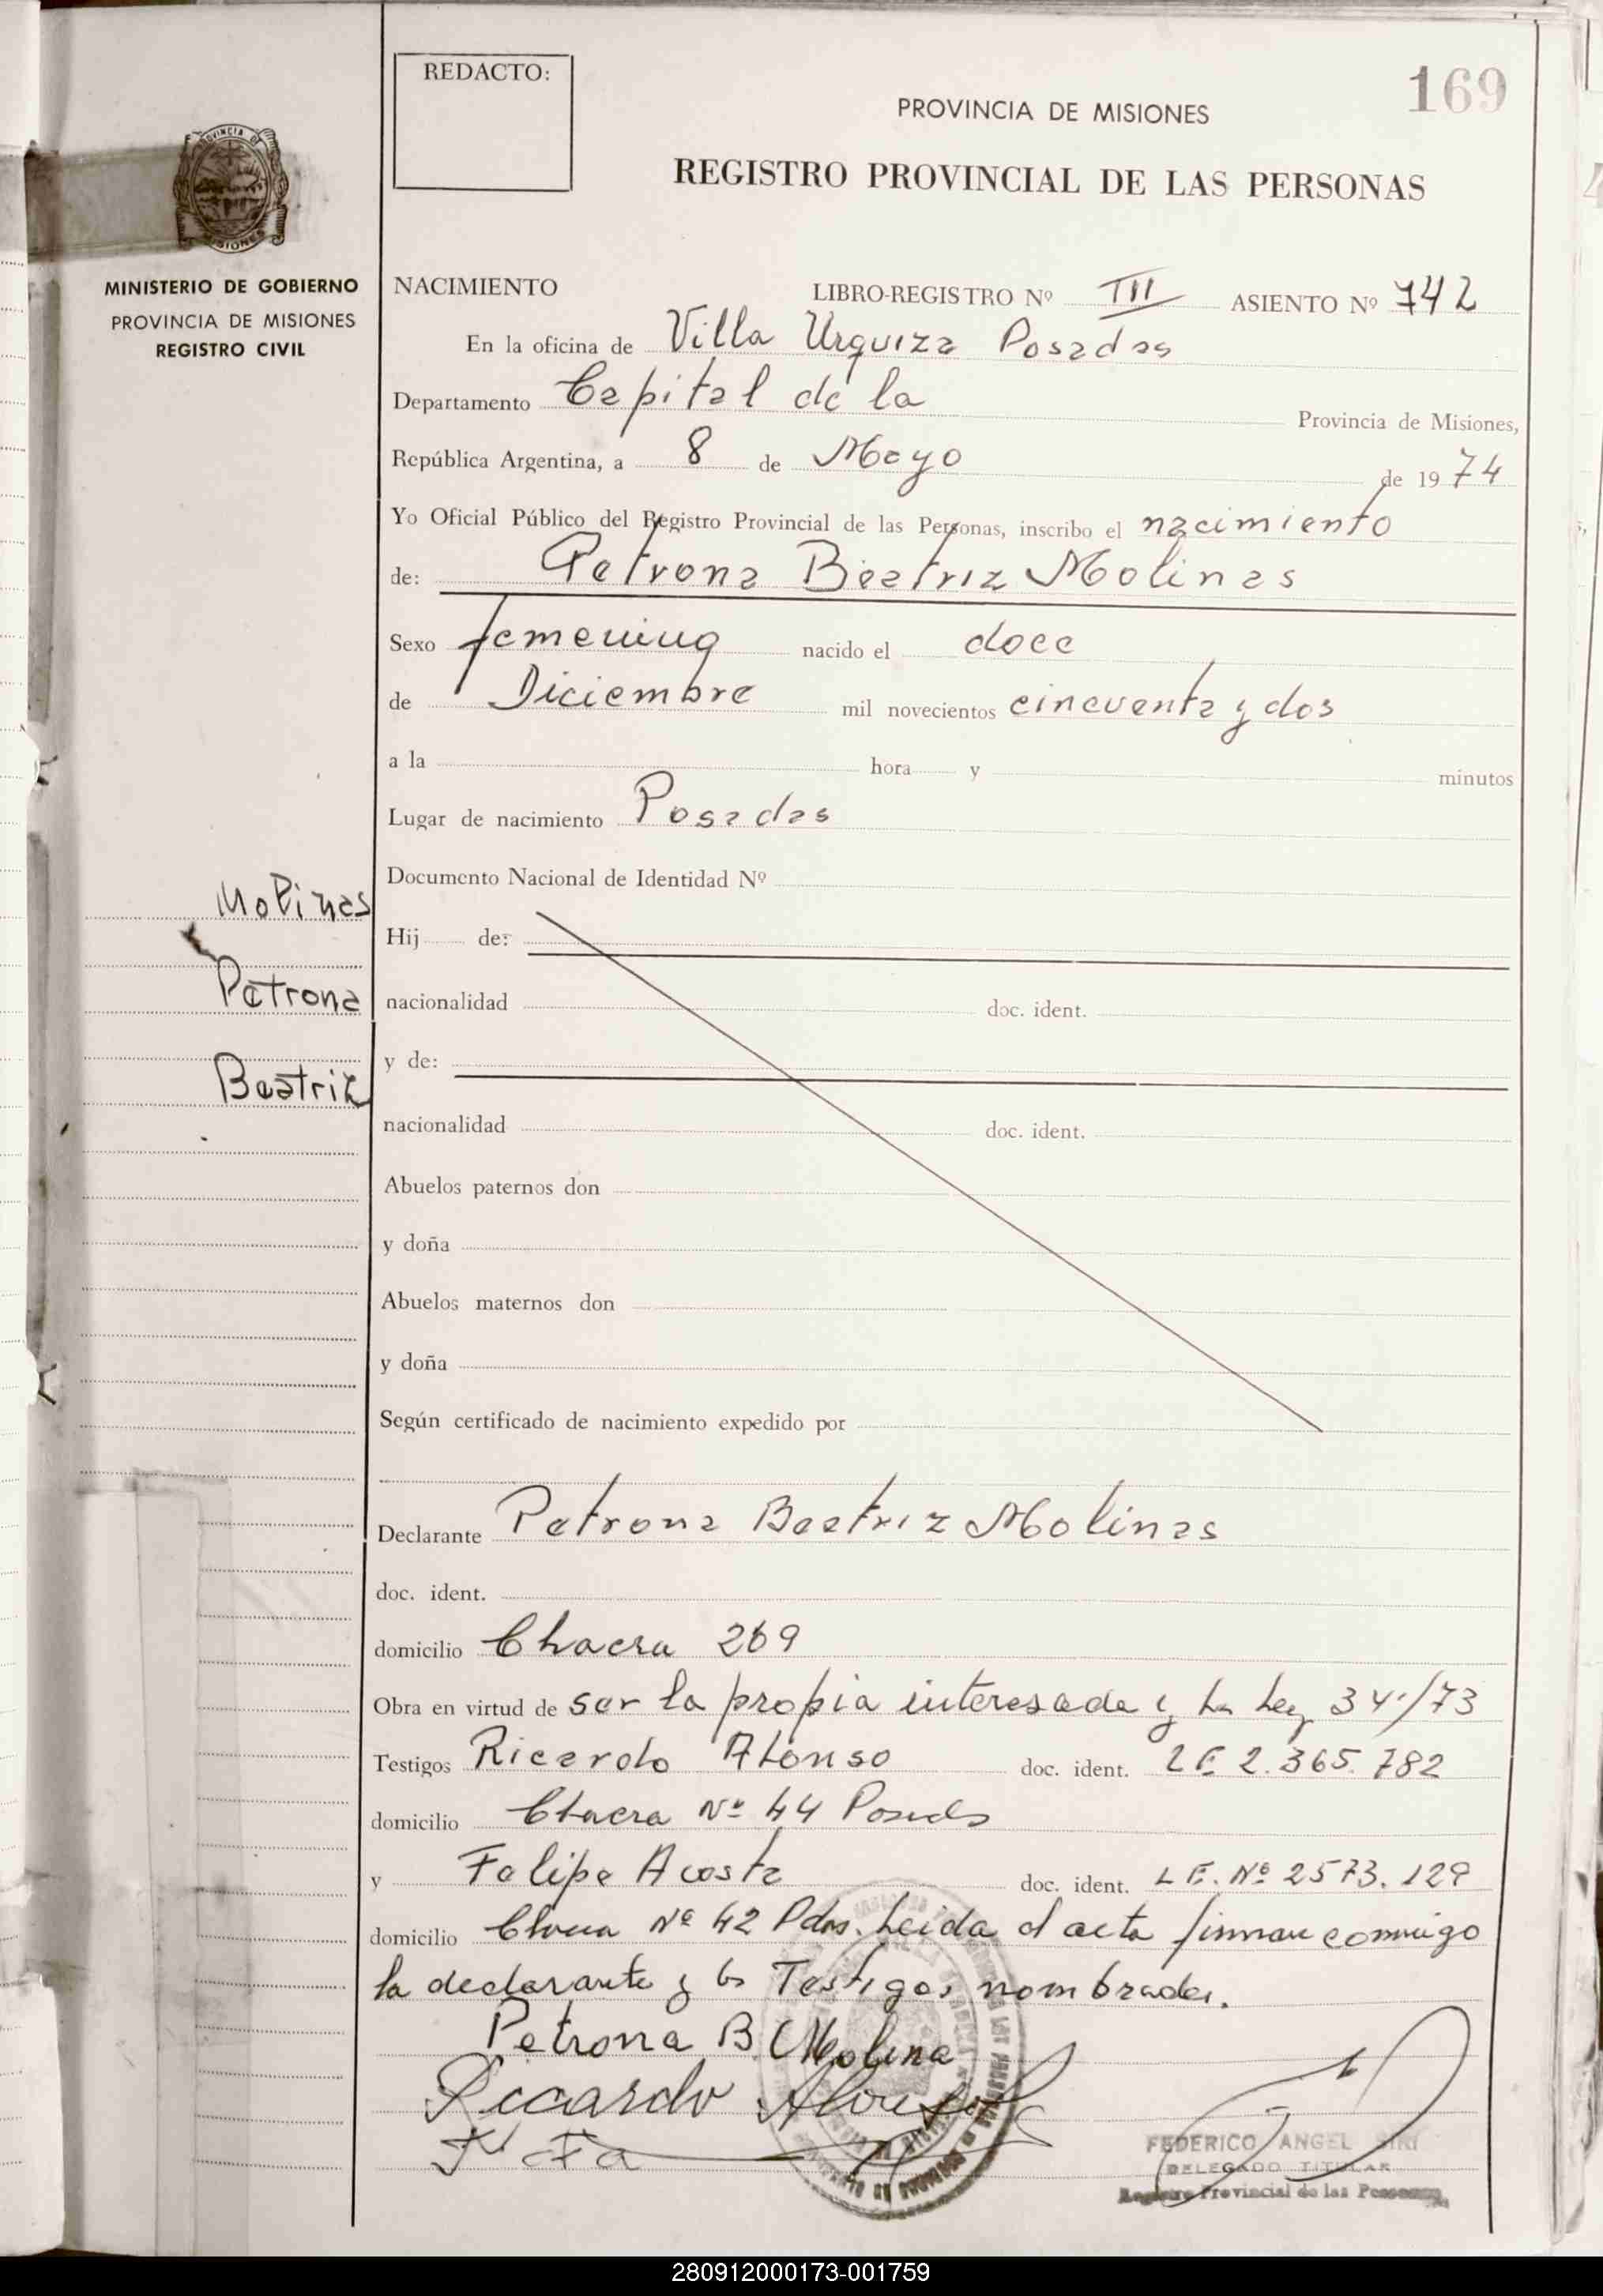 REDACTO:
169
PROVINCIA DE MISIONES
REGISTRO PROVINCIAL DE LAS PERSONAS
PROVINCIA DE
MISIONES
MINISTERIO DE GOBIERNO
PROVINCIA DE MISIONES
REGISTRO CIVIL
NACIMIENTO LIBRO-REGISTRO Nº III ASIENTO Nº 742
En la oficina de Villa Urquiza Posadas
Departamento Capital de la Provincia de Misiones,
República Argentina, a 8 de Mayo de 1974
Yo Oficial Público del Registro Provincial de las Personas, inscribo el nacimiento
de: Petrona Beatriz Molinas
Sexo femenino nacido el doce
de Diciembre mil novecientos cincuenta y dos
a la hora y minutos
Lugar de nacimiento Posadas
Documento Nacional de Identidad Nº
Molinas
Petrona
Beatriz
Hij de:
nacionalidad doc. ident.
y de:
nacionalidad doc. ident.
Abuelos paternos don
y doña
Abuelos maternos don
y doña
Según certificado de nacimiento expedido por
Declarante Petrona Beatriz Molinas
doc. ident.
domicilio Chacra 269
Obra en virtud de ser la propia interesada y la Ley 341/73
Testigos Ricardo Alonso doc. ident. LE 2.365.782
domicilio Chacra Nº 44 Posads
y Felipe Acosta doc. ident. L E. Nº 2573.129
domicilio Chacra Nº 42 Pdas. Leida el acta firman conmigo
la declarante y los Testigos nombrados.
Petrona B Molina
Ricardo Alonso
FEDERICO ANGEL SIRI
DELEGADO TITULAR
Registro Provincial de las Personas
280912000173-001759